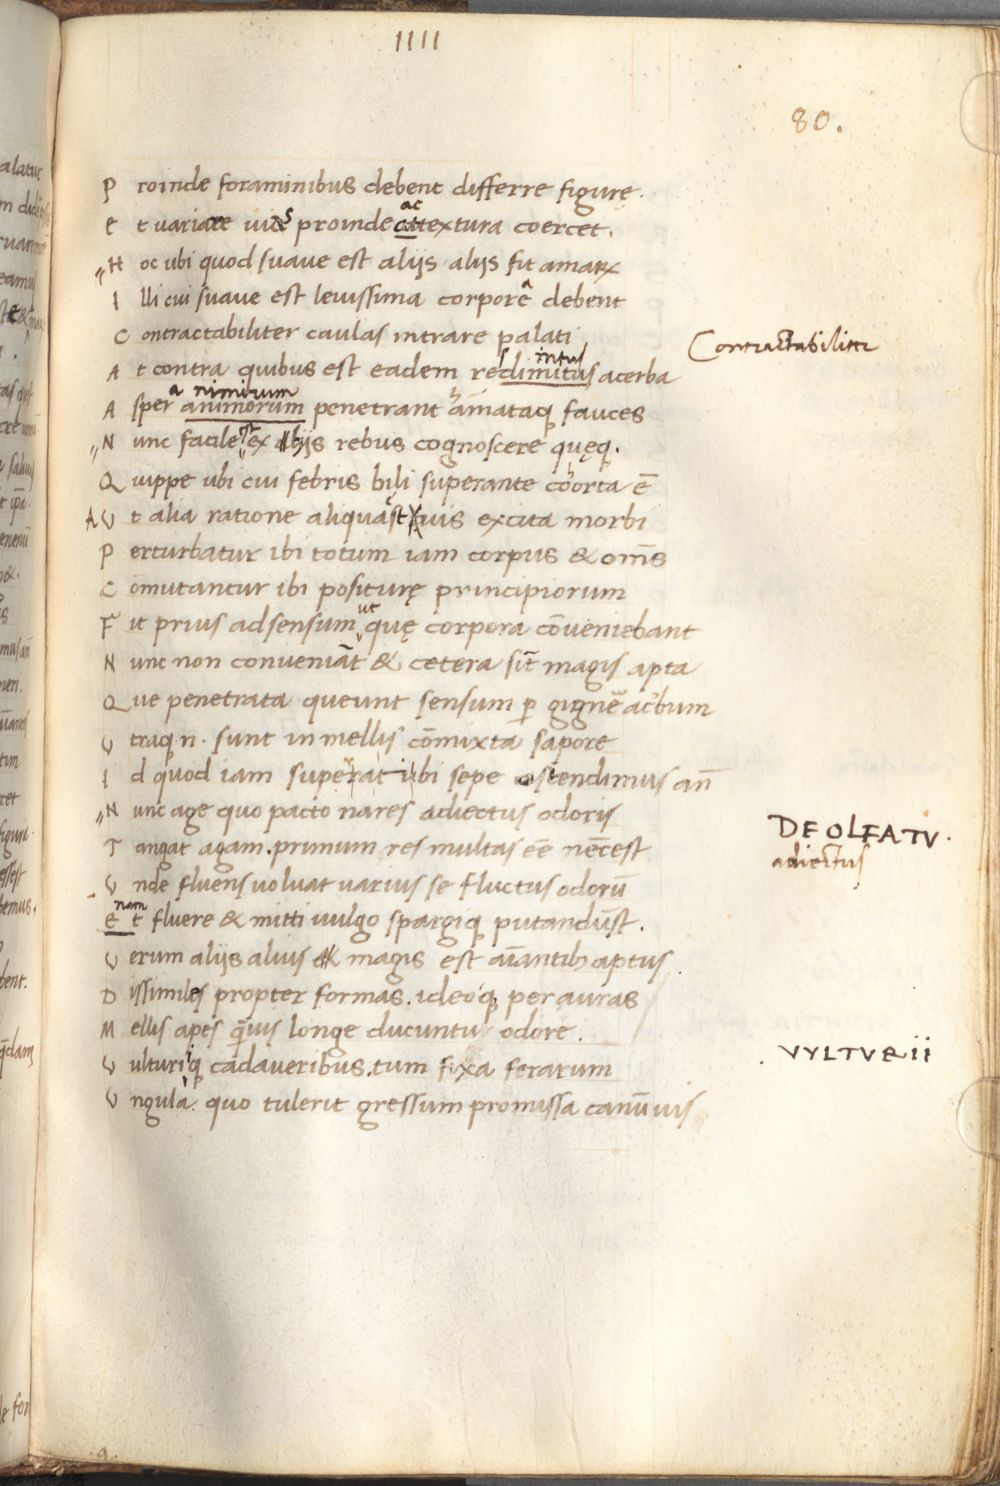 IIII
80.
Proinde foraminibus debent differre figurę.
Et variare uias proinde ac attextura coercet.
Hoc ubi quod suaue est aliis aliis fit amarx
Illi cui suaue est leuissima corpore debent
Contractabiliter caulas intrare palati
Contractabiliter
At contra quibus est eadem res intus dimitus acerba
Aspera nimirum animorum penetrant hamataq fauces
Nunc facile est ex his rebus cognoscere quęq.
Quippe ubi cui febris bili superante cohorta ē
AUt alia ratione aliquast uis excita morbi
Perturbatur ibi totum iam corpus & om̄s
Comutantur ibi positurę principiorum
Fit prius adsensum ut quę corpora cōueniebant
Nunc non conueniāt & cetera sīt magis apta
Que penetrata queunt sensum p gignē acerbum
Utraq n. sunt in mellis cōmixta sapore
Id quod iam superat ibi sepe ostendimus an̄
Nunc age quo pacto nares adiectus odoris
DE OLFATV.
adiectus
Tangat agam. primum res multas eē necēst
Unde fluens uoluat uarius se fluctus odorū
nam
et fluere & mitti uulgo spargiq putandūst.
Uerum aliis alius magis est aīantib aptus
Dissimiles propter formas. ideoq per auras
Mellis apes q̄uis longe ducuntur odore.
Uulturiiq cadaueribus. tum fixa ferarum
VVLTVRII
Ungula quo tulerit gressum promissa canū uis